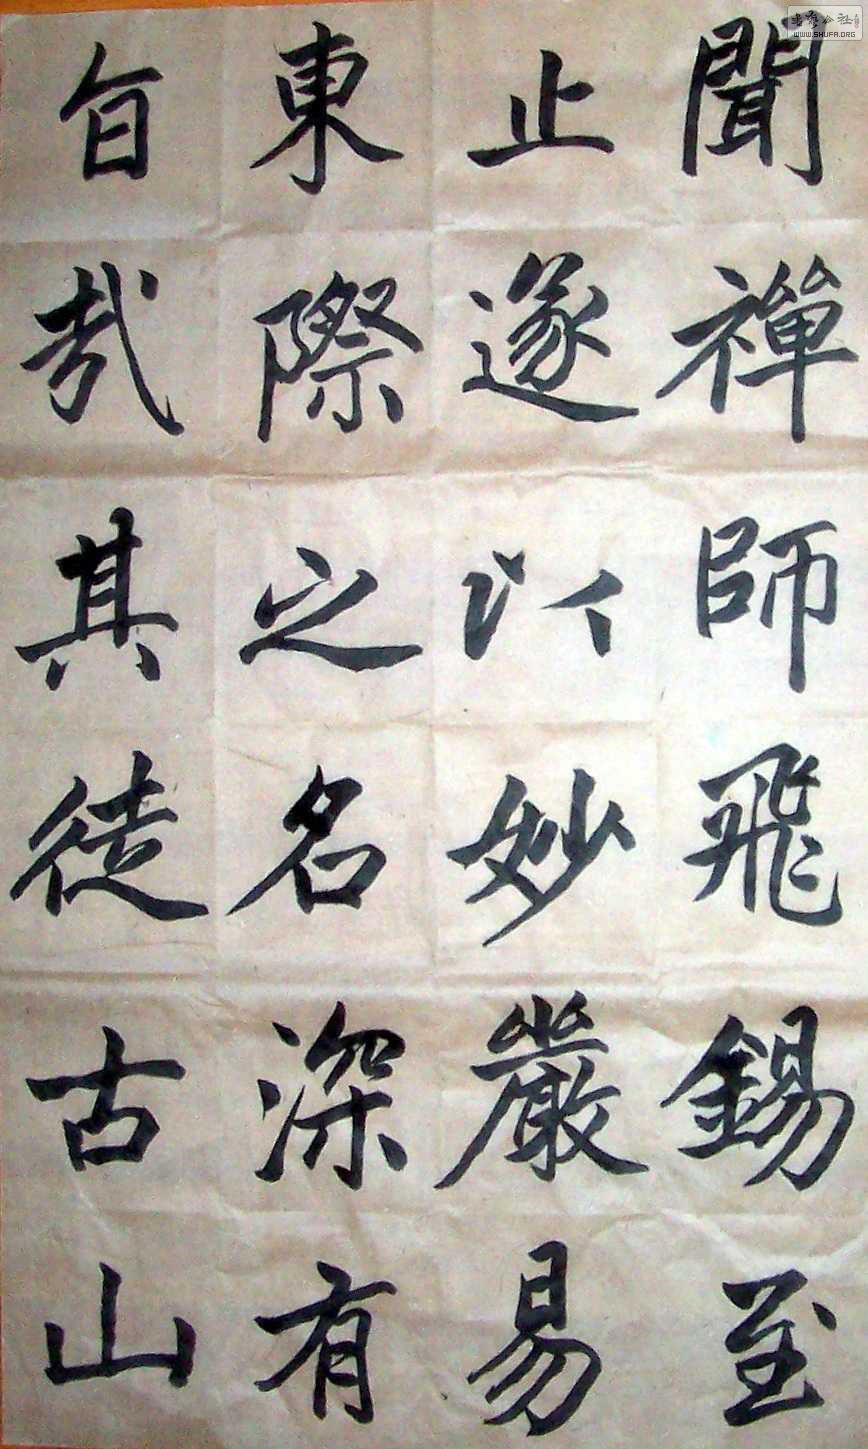 聞禪師飛錫至
止遂以妙嚴易
東際之名深有
旨哉其徒古山
书法公社
WWW.SHUFA.ORG